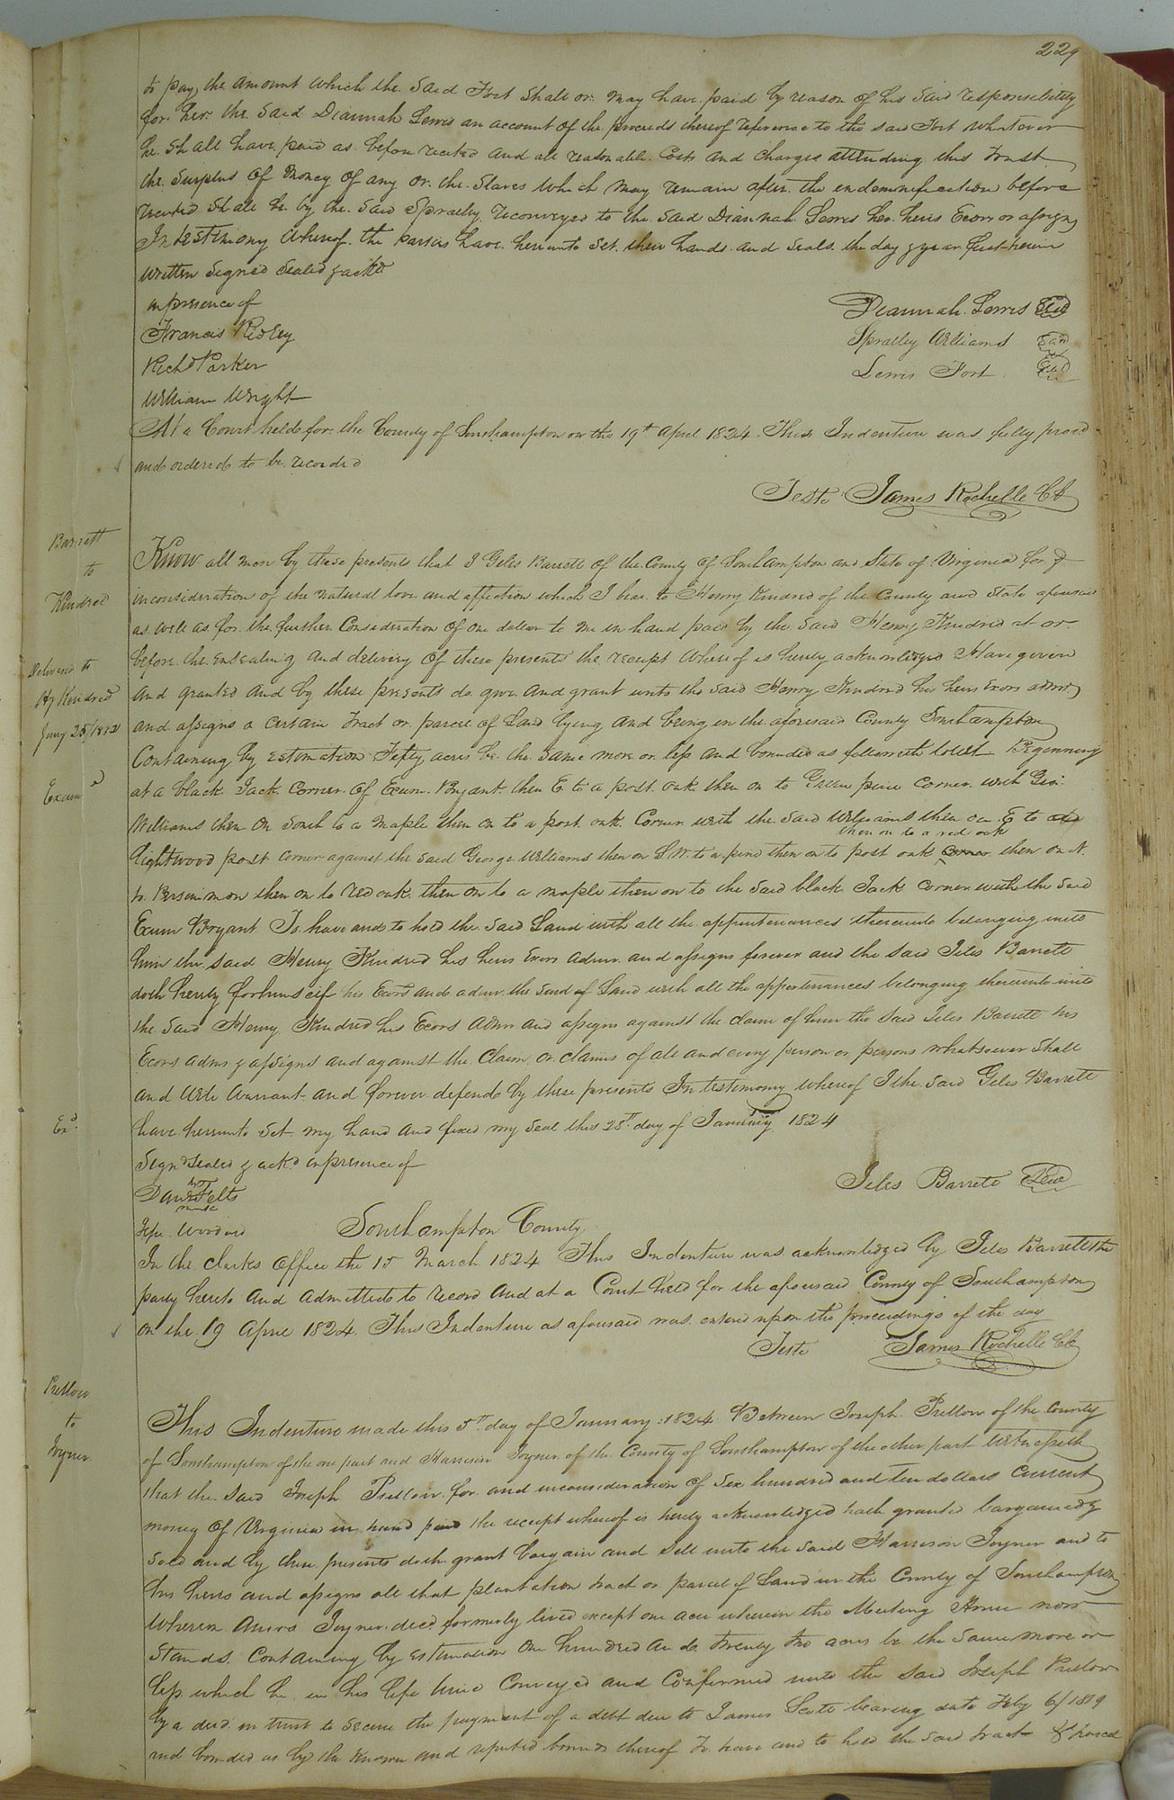 229
to pay the amount which the said Fort shall or may have paid by reason of his said responsibility
for her the said Diannah Lewis an account of the proceeds thereof reference to the said Fort whatever
he shall have paid as before recited and all reasonable Costs and charges attending this Trust
the surplus of money of any or the slaves which may remain after the indemnification before
recited shall be by the said Spratley reconveyed to the said Diannah Lewis her heirs Exors or assigns
In testimony whereof the parties have hereunto set their hands and seals the day & year first herein
written signed sealed & ackd
in presence of
Francis Ridley
Richd Parker
William Wright
Diannah Lewis Seal
Spratley Williams Seal
Lewis Fort Seal
At a Court held for the County of Southampton on the 19th April 1824 This Indenture was fully proved
and ordered to be recorded
Teste James Rochelle CC
Barrett
to
Kindred
Delivered to
Hy Kindred
Examd
Know all men by these presents that I Giles Barrett of the County of Southampton and State of Virginia for &
in consideration of the natural love and affection which I bear to Henry Kindred of the County and State aforesaid
as well as for the further Consideration of one dollar to me in hand paid by the said Henry Kindred at or
before the ensealing and delivery of these presents the receipt whereof is hereby acknowledged Have given
and granted and by these presents do give and grant unto the said Henry Kindred his heirs Exors admrs
and assigns a certain tract or parcel of Land lying and being in the aforesaid County Southampton
Containing by estimation Fifty acres be the same more or less and bounded as followeth towit Beginning
at a black Jack corner of Exum Bryant then E to a post oak then on to Green pine corner with Geo:
Williams then on South to a maple then on to a post oak Corner with the said Williams then on E to
then on to a red oak
lightwood post corner against the said George Williams then on S W. to a pine then on to post oak corner then on N.
to Persimmon then on to red oak then on to a maple then on to the said black Jack corner with the said
Exum Bryant To have and to hold the said Land with all the appurtenances thereunto belonging unto
him the said Henry Kindred his heirs Exors admrs and assigns forever and the said Jiles Barrett
doth hereby for himself his Exors and admr the said of Land with all the appertenances belonging thereunto unto
the said Henry Kindred his Exors admr and assigns against the claim of him the said Jiles Barrett his
Exors admrs & assigns and against the claim or claims of all and every person or persons whatsoever shall
and will warrant and forever defend by these presents In testimony whereof I the said Giles Barrett
Exd
have hereunto set my hand and fixed my seal this 28th day of January 1824
Signd sealed & ackd in presence of
Jiles Barrett Seal
Southampton County
In the clerks office the 15 March 1824 This Indenture was acknowledged by Jiles Barrett the
party hereto and admitted to record and at a Court held for the aforesaid County of Southampton
on the 19 April 1824. This Indenture as aforesaid was entered upon the proceedings of the day
Teste James Rochelle CC
Pretlow
to
Joyner
This Indenture made this 5th day of January 1824 Between Joseph Pretlow of the County
of Southampton of the one part and Harrison Joyner of the County of Southampton of the other part Witnesseth
that the said Joseph Pretlow for and in consideration of Six hundred and ten dollars current
money of Virginia in hand paid the receipt whereof is hereby acknowledged hath granted bargained &
sold and by these presents doth grant bargain and sell unto the said Harrison Joyner and to
his heirs and assigns all that plantation tract or parcel of Land in the County of Southampton
Wherein Amos Joyner decd formerly lived except one acre wherein the Meeting House now
Stands. Containing by estimation One hundred and twenty two acres be the same more or
less which he in his life time Conveyed and Confirmed unto the said Joseph Pretlow
by a deed in trust to secure the payment of a debt due to James Scott bearing date Feby 6/ 1819
and bounded as by the known and reputed bounds thereof To have and to hold the said tract & parcel